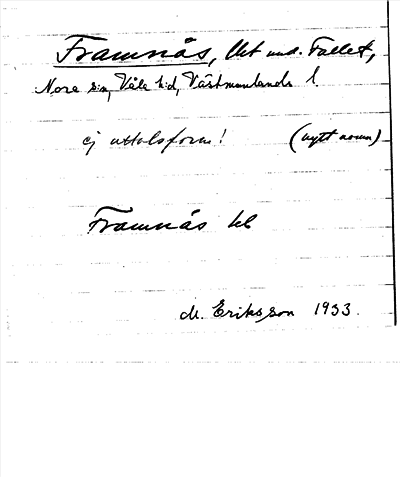 Framnäs, lht und. Fallet,
Nora sn, Våla hd, Västmanlands l.
ej uttalsform! (nytt namn)
Framnäs lht
M. Eriksson 1933.